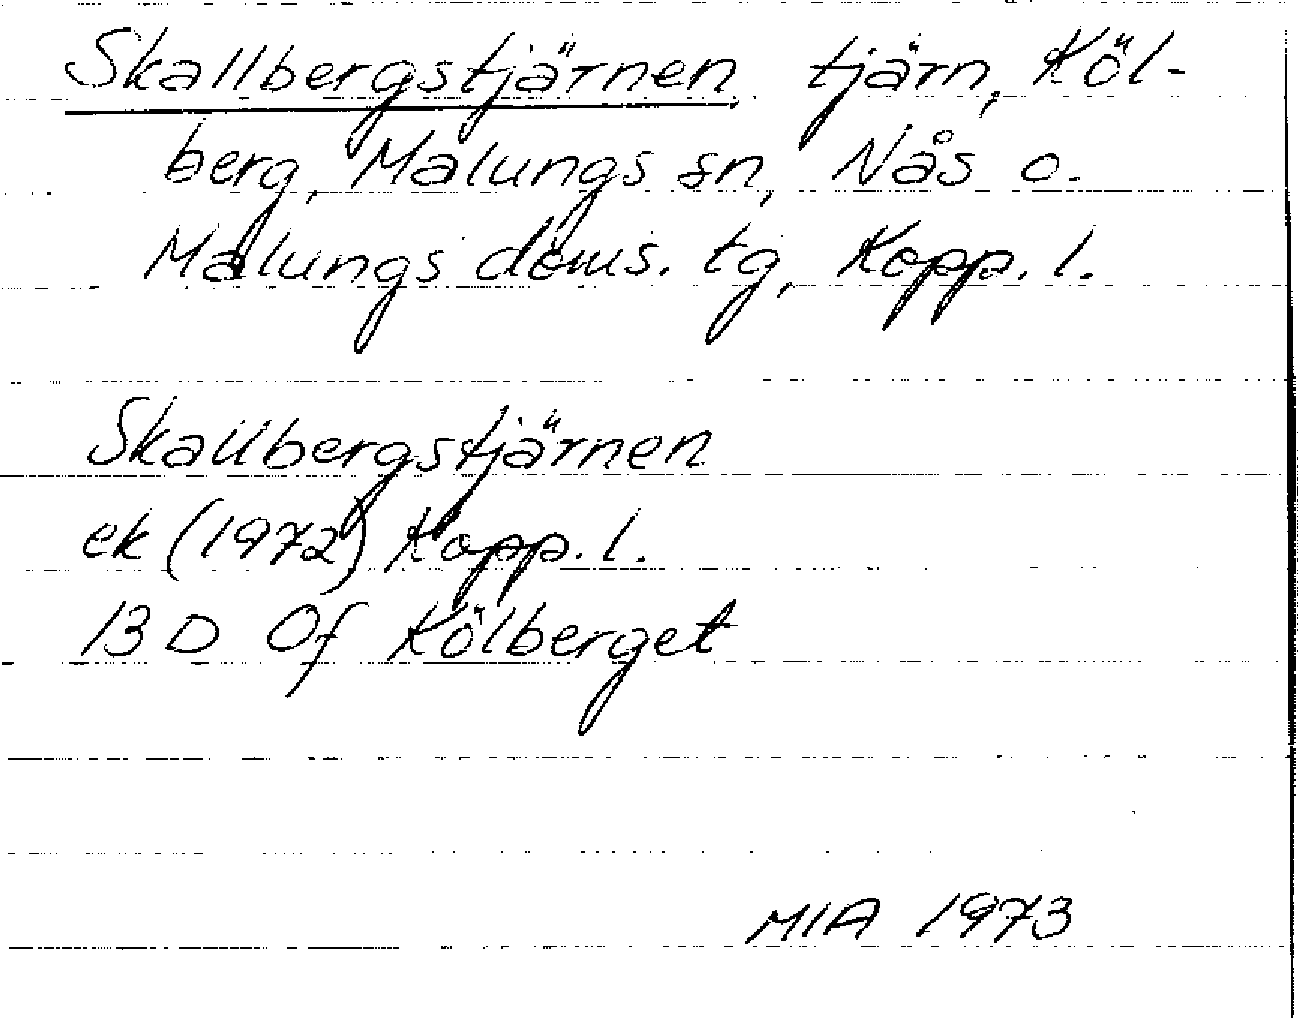 Skallbergstjärnen, tjärn, Köl-
berg, Malungs sn, Nås o.
Malungs doms. tg, Kopp. l.
Skallbergstjärnen
ek (1972) Kopp. l.
13 D 0f Kölberget
MIA 1973